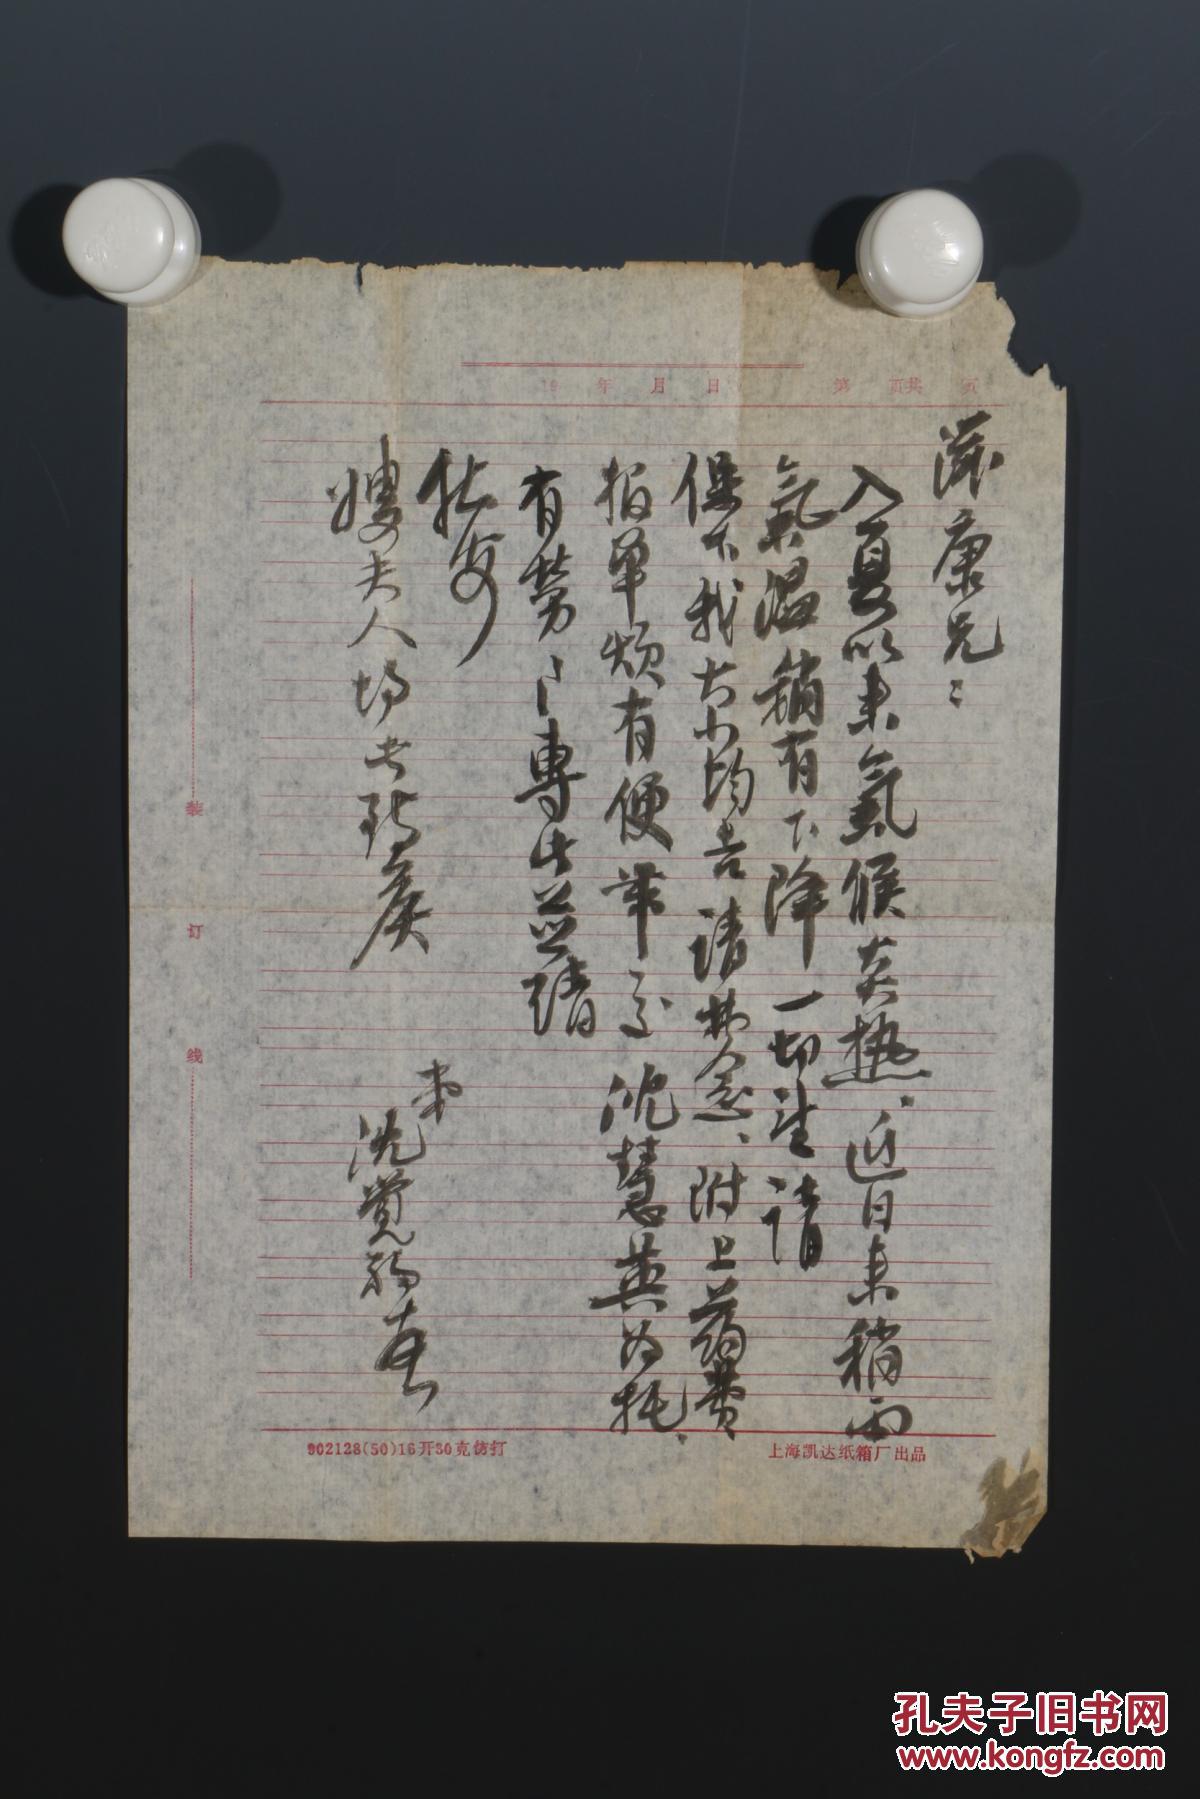 19 年 月 日 第 页共 页
康兄：
入夏以来气候炎热，近日来稍雨
气温稍有下降一切望请
保下我大小均吉请勿念、附上药费
报单烦有便带交沈慧英为托、
有劳〻专此并请
嫂夫人均此致候
弟
沈觉初
装
订
线
902128(50)16开30克仿打
上海凯达纸箱厂出品
孔夫子旧书网
www.kongfz.com